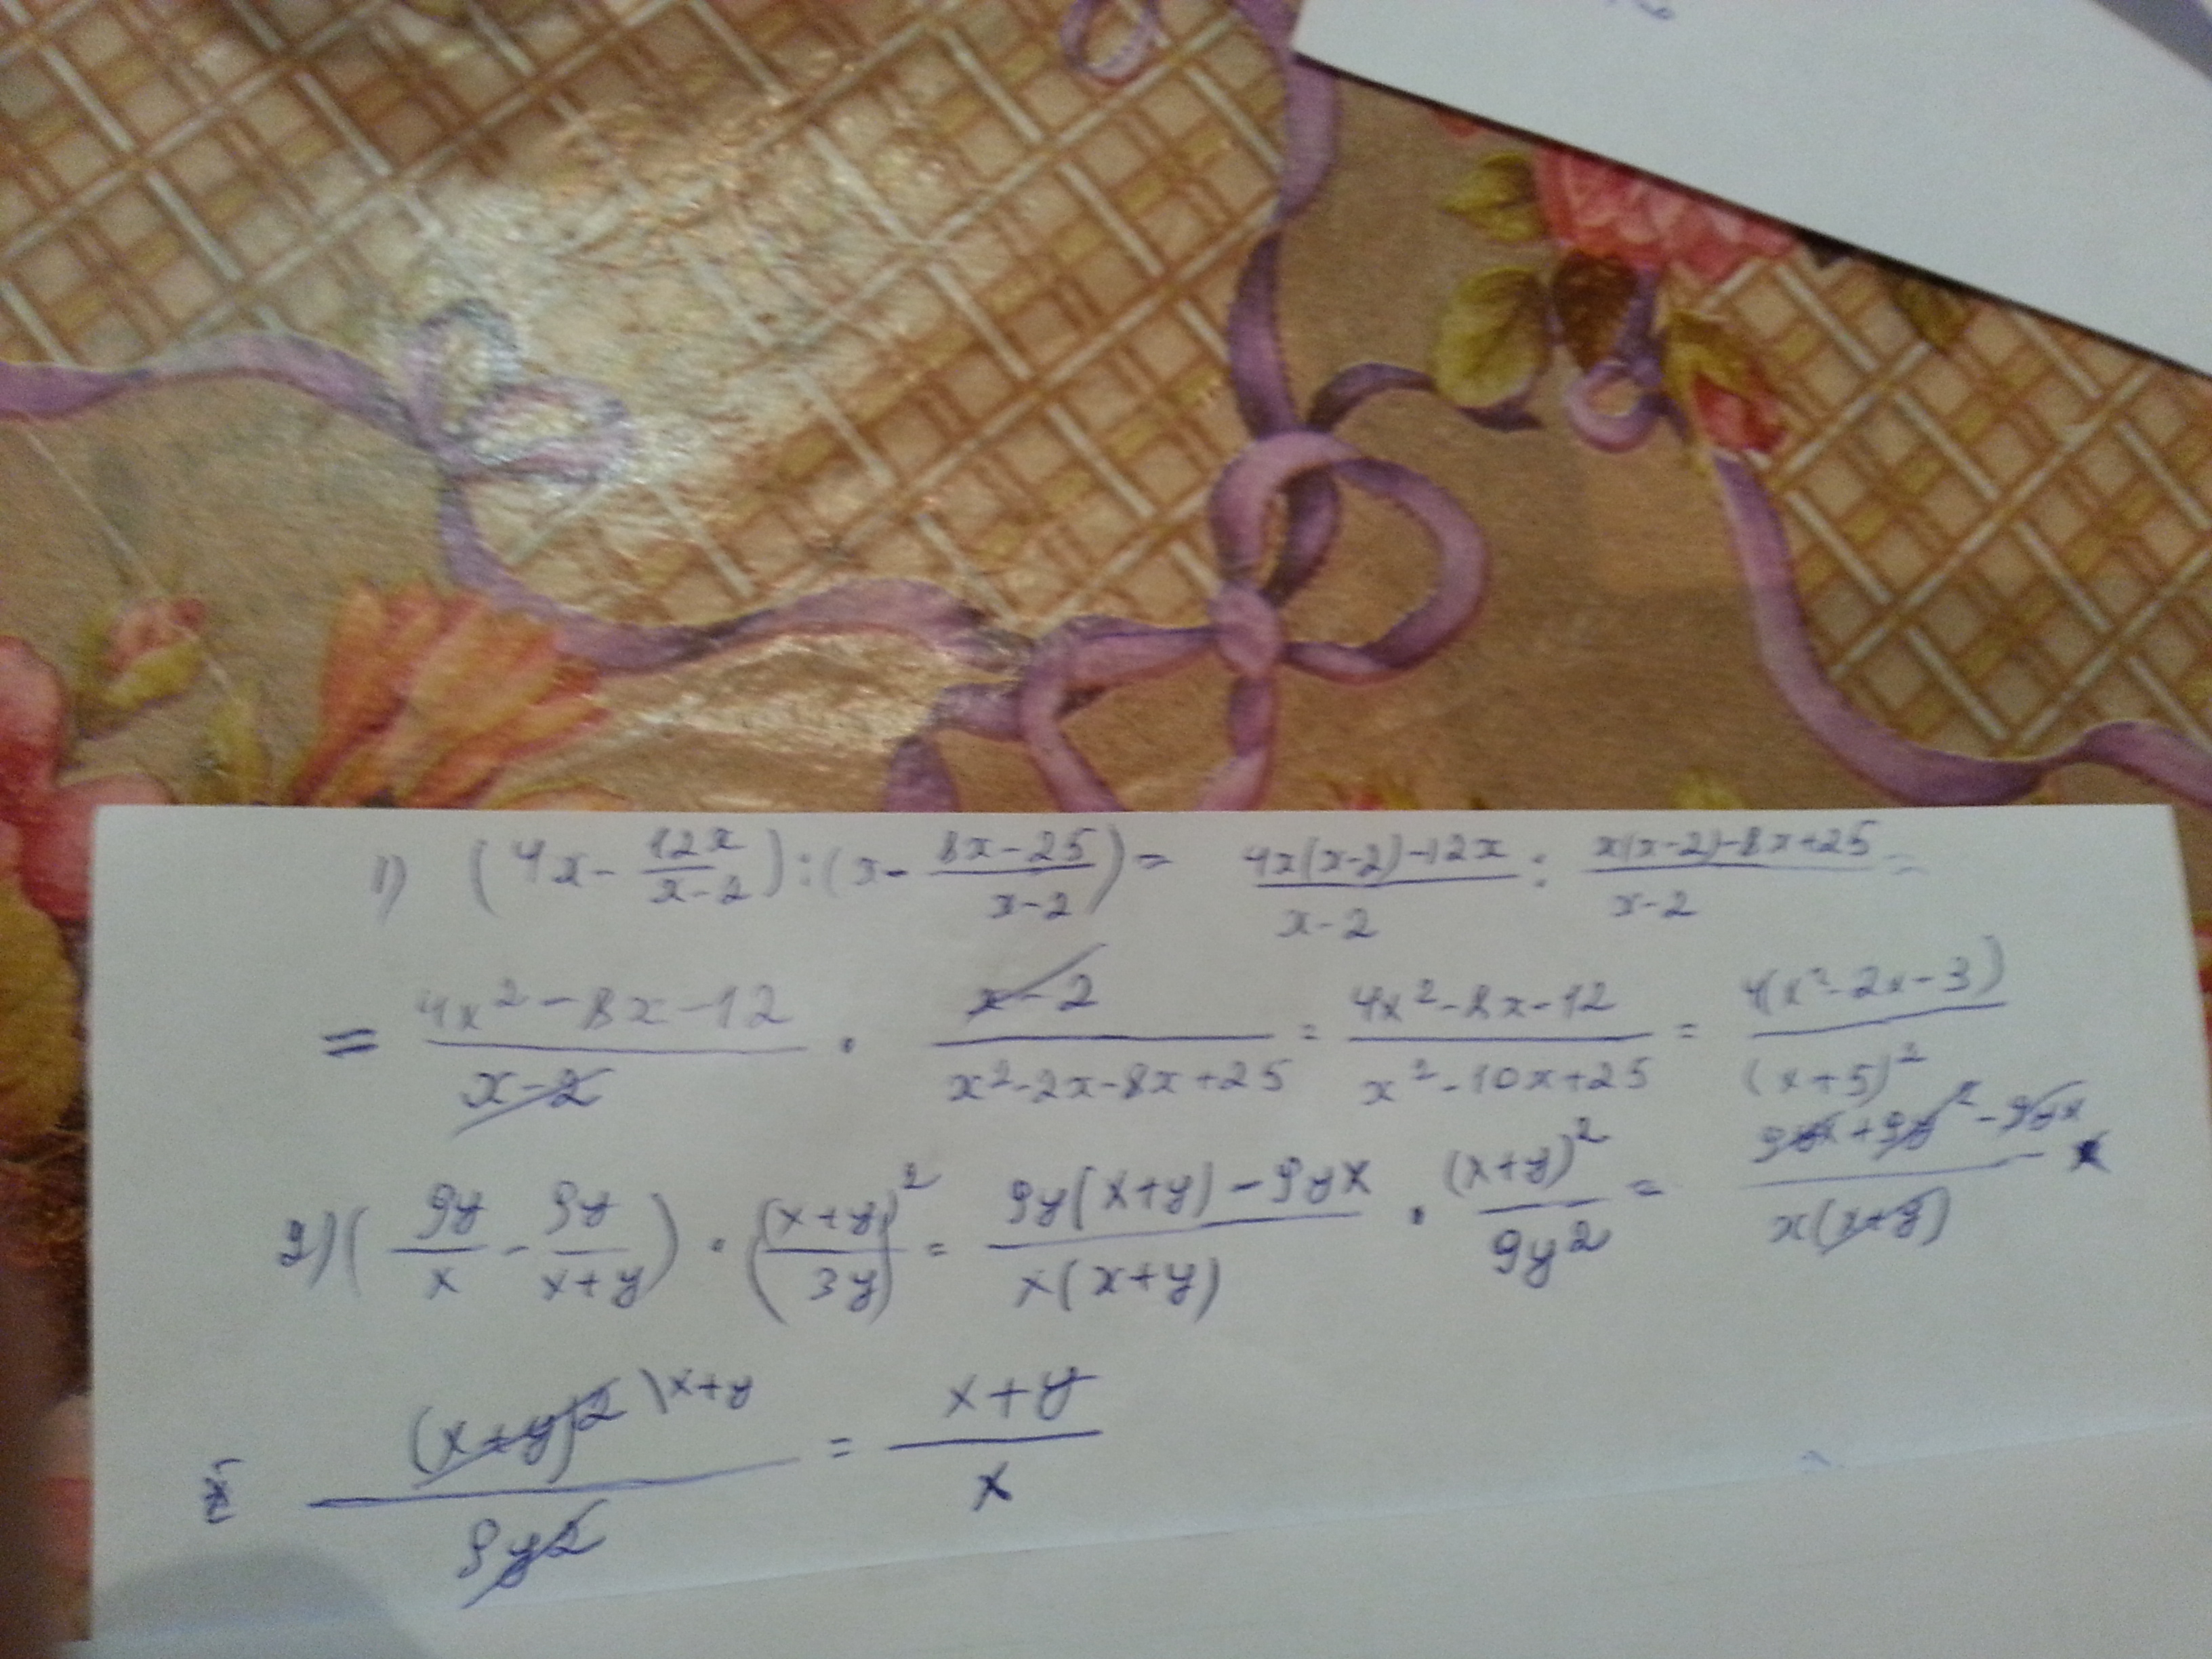 1) (4x - 12x/(x-2)) : (x - (8x-25)/(x-2)) = (4x(x-2)-12x)/(x-2) : (x(x-2)-8x+25)/(x-2) =
= (4x²-8x-12)/(x-2) · (x-2)/(x²-2x-8x+25) = (4x²-8x-12)/(x²-10x+25) = 4(x²-2x-3)/(x+5)²
2) (9y/x - 9y/(x+y)) · ((x+y)/3y)² = (9y(x+y)-9yx)/(x(x+y)) · (x+y)²/9y² = (9yx+9y²-9yx)/(x(x+y)) ×
× (x+y)² \x+y / 9y² = (x+y)/x